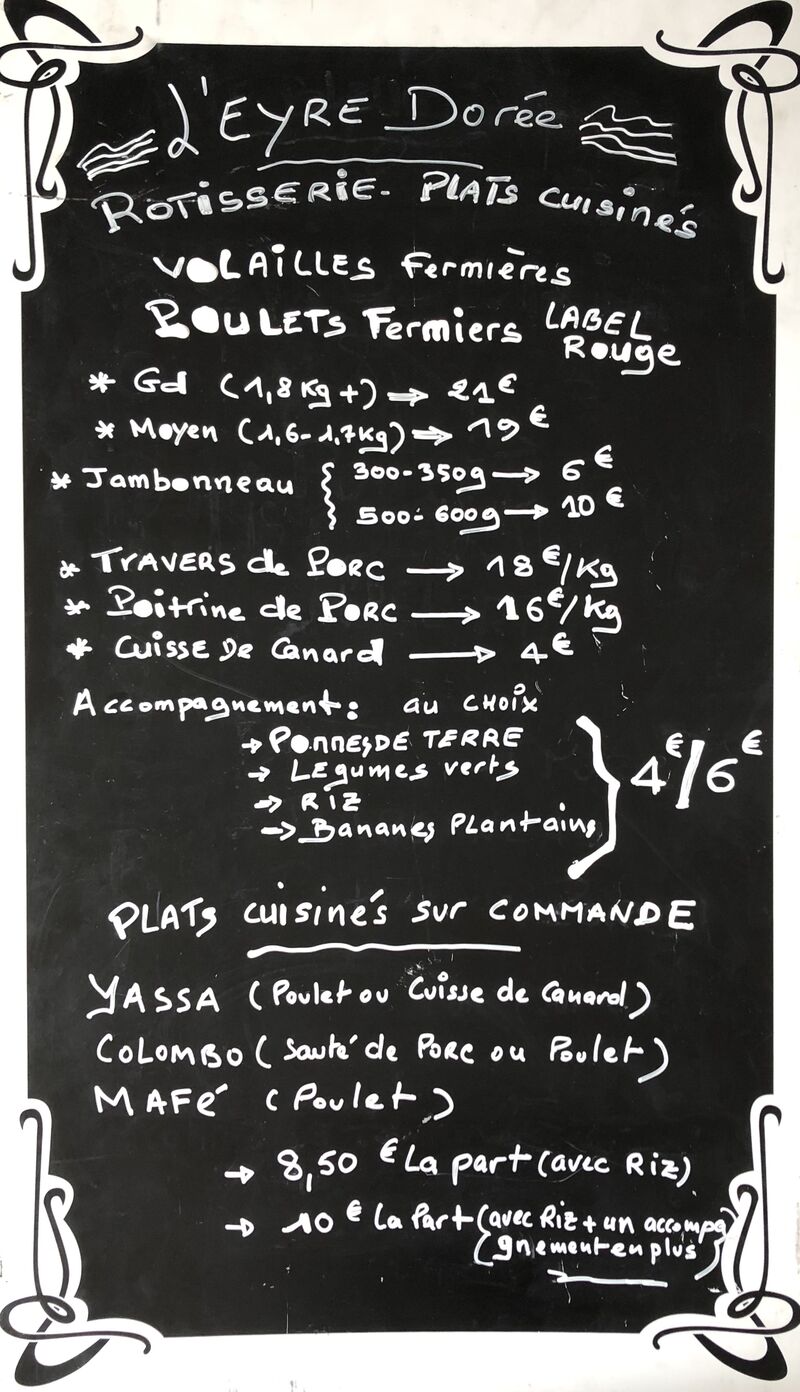 L'EYRE DORÉE
ROTISSERIE - PLATS CUISINÉS
VOLAILLES Fermières
POULETS Fermiers LABEL Rouge
* Gd (1,8 Kg +) → 21€
* Moyen (1,6-1,7Kg) → 19€
* Jambonneau { 300-350g → 6€
500-600g → 10€
* TRAVERS de PORC → 18€/Kg
* Poitrine de PORC → 16€/Kg
* CUISSE De Canard → 4€
Accompagnement: au CHOIX
→ POMMES DE TERRE
→ LEgumes verts
→ RIZ
→ Bananes PLantains
} 4€/6€
PLATS cuisinés sur COMMANDE
YASSA (Poulet ou Cuisse de Canard)
COLOMBO (Sauté de PORC ou Poulet)
MAFé (Poulet)
→ 8,50 € La part (avec Riz)
→ 10 € La Part (avec Riz + un accompa
gnement en plus)